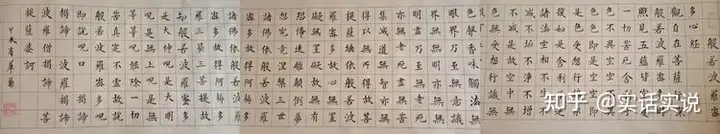 般若波羅蜜
多心經
觀自在菩薩行深
般若波羅蜜多時
照見五蘊皆空度
一切苦厄舍利子
色不異空空不異
色色即是空空即
是色受想行識亦
復如是舍利子是
諸法空相不生不
滅不垢不淨不增
不減是故空中無
色無受想行識
色聲香味觸法無
眼界乃至無意識
界無無明亦無無
明盡乃至無老死
亦無老死盡無苦
集滅道無智亦無
得以無所得故菩
提薩埵依般若波
羅蜜多故心無罣
礙無罣礙故無有
恐怖遠離顛倒夢
想究竟涅槃三世
諸佛依般若波羅
蜜多故得阿耨多
諸佛依般若波羅
蜜多故得阿耨多
羅三藐三菩提故
知般若波羅蜜多
是大神咒是大明
咒是無上咒是無
等等咒能除一切
苦真實不虛故說
般若波羅蜜多咒
即說咒曰 揭諦
揭諦 波羅揭諦
波羅僧揭諦 菩
提薩婆訶
知乎 @实话实说